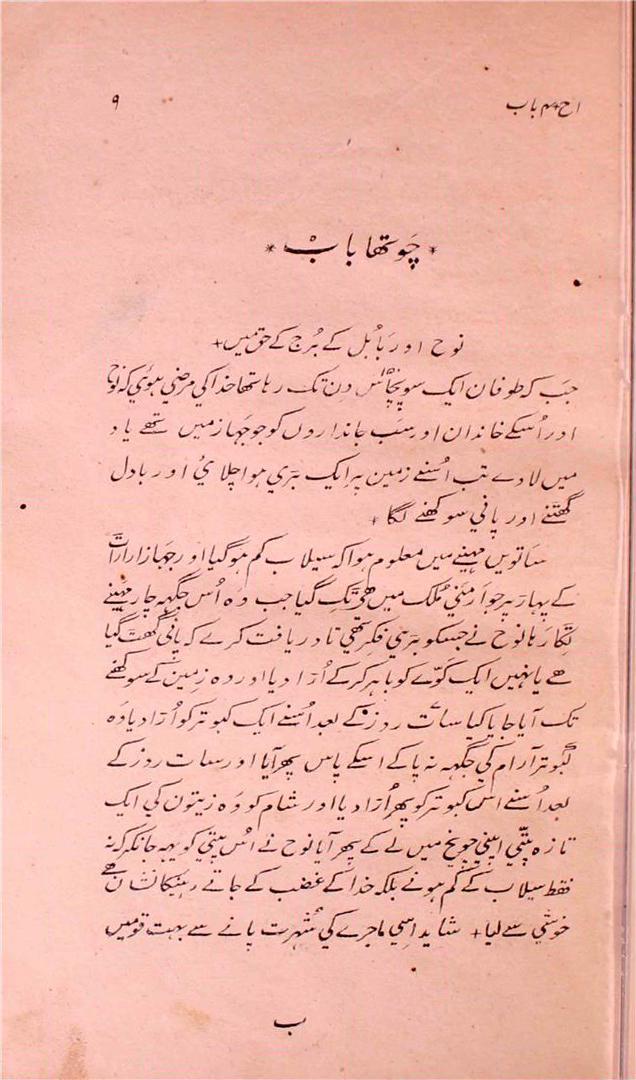 ۱ح ۴م باب ۹
* چَوتھا بابْ *
نوح اور بابُل کے بُرج کے حق میں+
جَب کہ طوفان ایک سو پچاس دِن تک رہا تھا خدا کي مرضي ہوئي کہ نوح
اور اُسکے خاندان اور سَب جانداروں کو جو جہاز میں تھے یاد
میں لاوے تب اُسنے زمین پر ایک بَري ہوا چلائ اور بادل
گھٹنے اور پاني سوکھنے لگا+
ساتویں مہینے میں معلوم ہوا کہ سیلاب کم ہو گیا اور جہاز ارارات
کے پہاڑ پر جو ارمَني مُلک میں ھي ٹِک گیا جب وہ اُس جگہہ چار مہینے
ٹِکا رہا نوح نے جسکو بَري فکر تھي تا دریافت کرے کہ پاني گھٹ گیا
ھے یا نہیں ایک کوّے کو باہر کرکے اُڑا دیا اور وہ زمین کے سوکھنے
تک آیا جایا کیا سات روز کے بعد اُسنے ایک کبوتر کو اُڑا دیا وَہ
کبوتر آرام کي جگہہ نہ پا کے اسکے پاس پھر آیا اور سات روز کے
بعد اُسنے اُس کبوتر کو پھر اُڑا دیا اور شام کو وَہ زیتون کي ایک
تازہ پتّي اپني چونچ میں لے کے پھر آیا نوح نے اُس پتّي کو یہہ جانکر کہ نہ
فقط سیلاب کے کم ہونے بلکہ خدا کے غضب کے جاتے رہنیکا نشان ھے
خوشي سے لیا+ شاید اِسي ماجرے کي شُہرت پانے سے بہت قومیں
ب